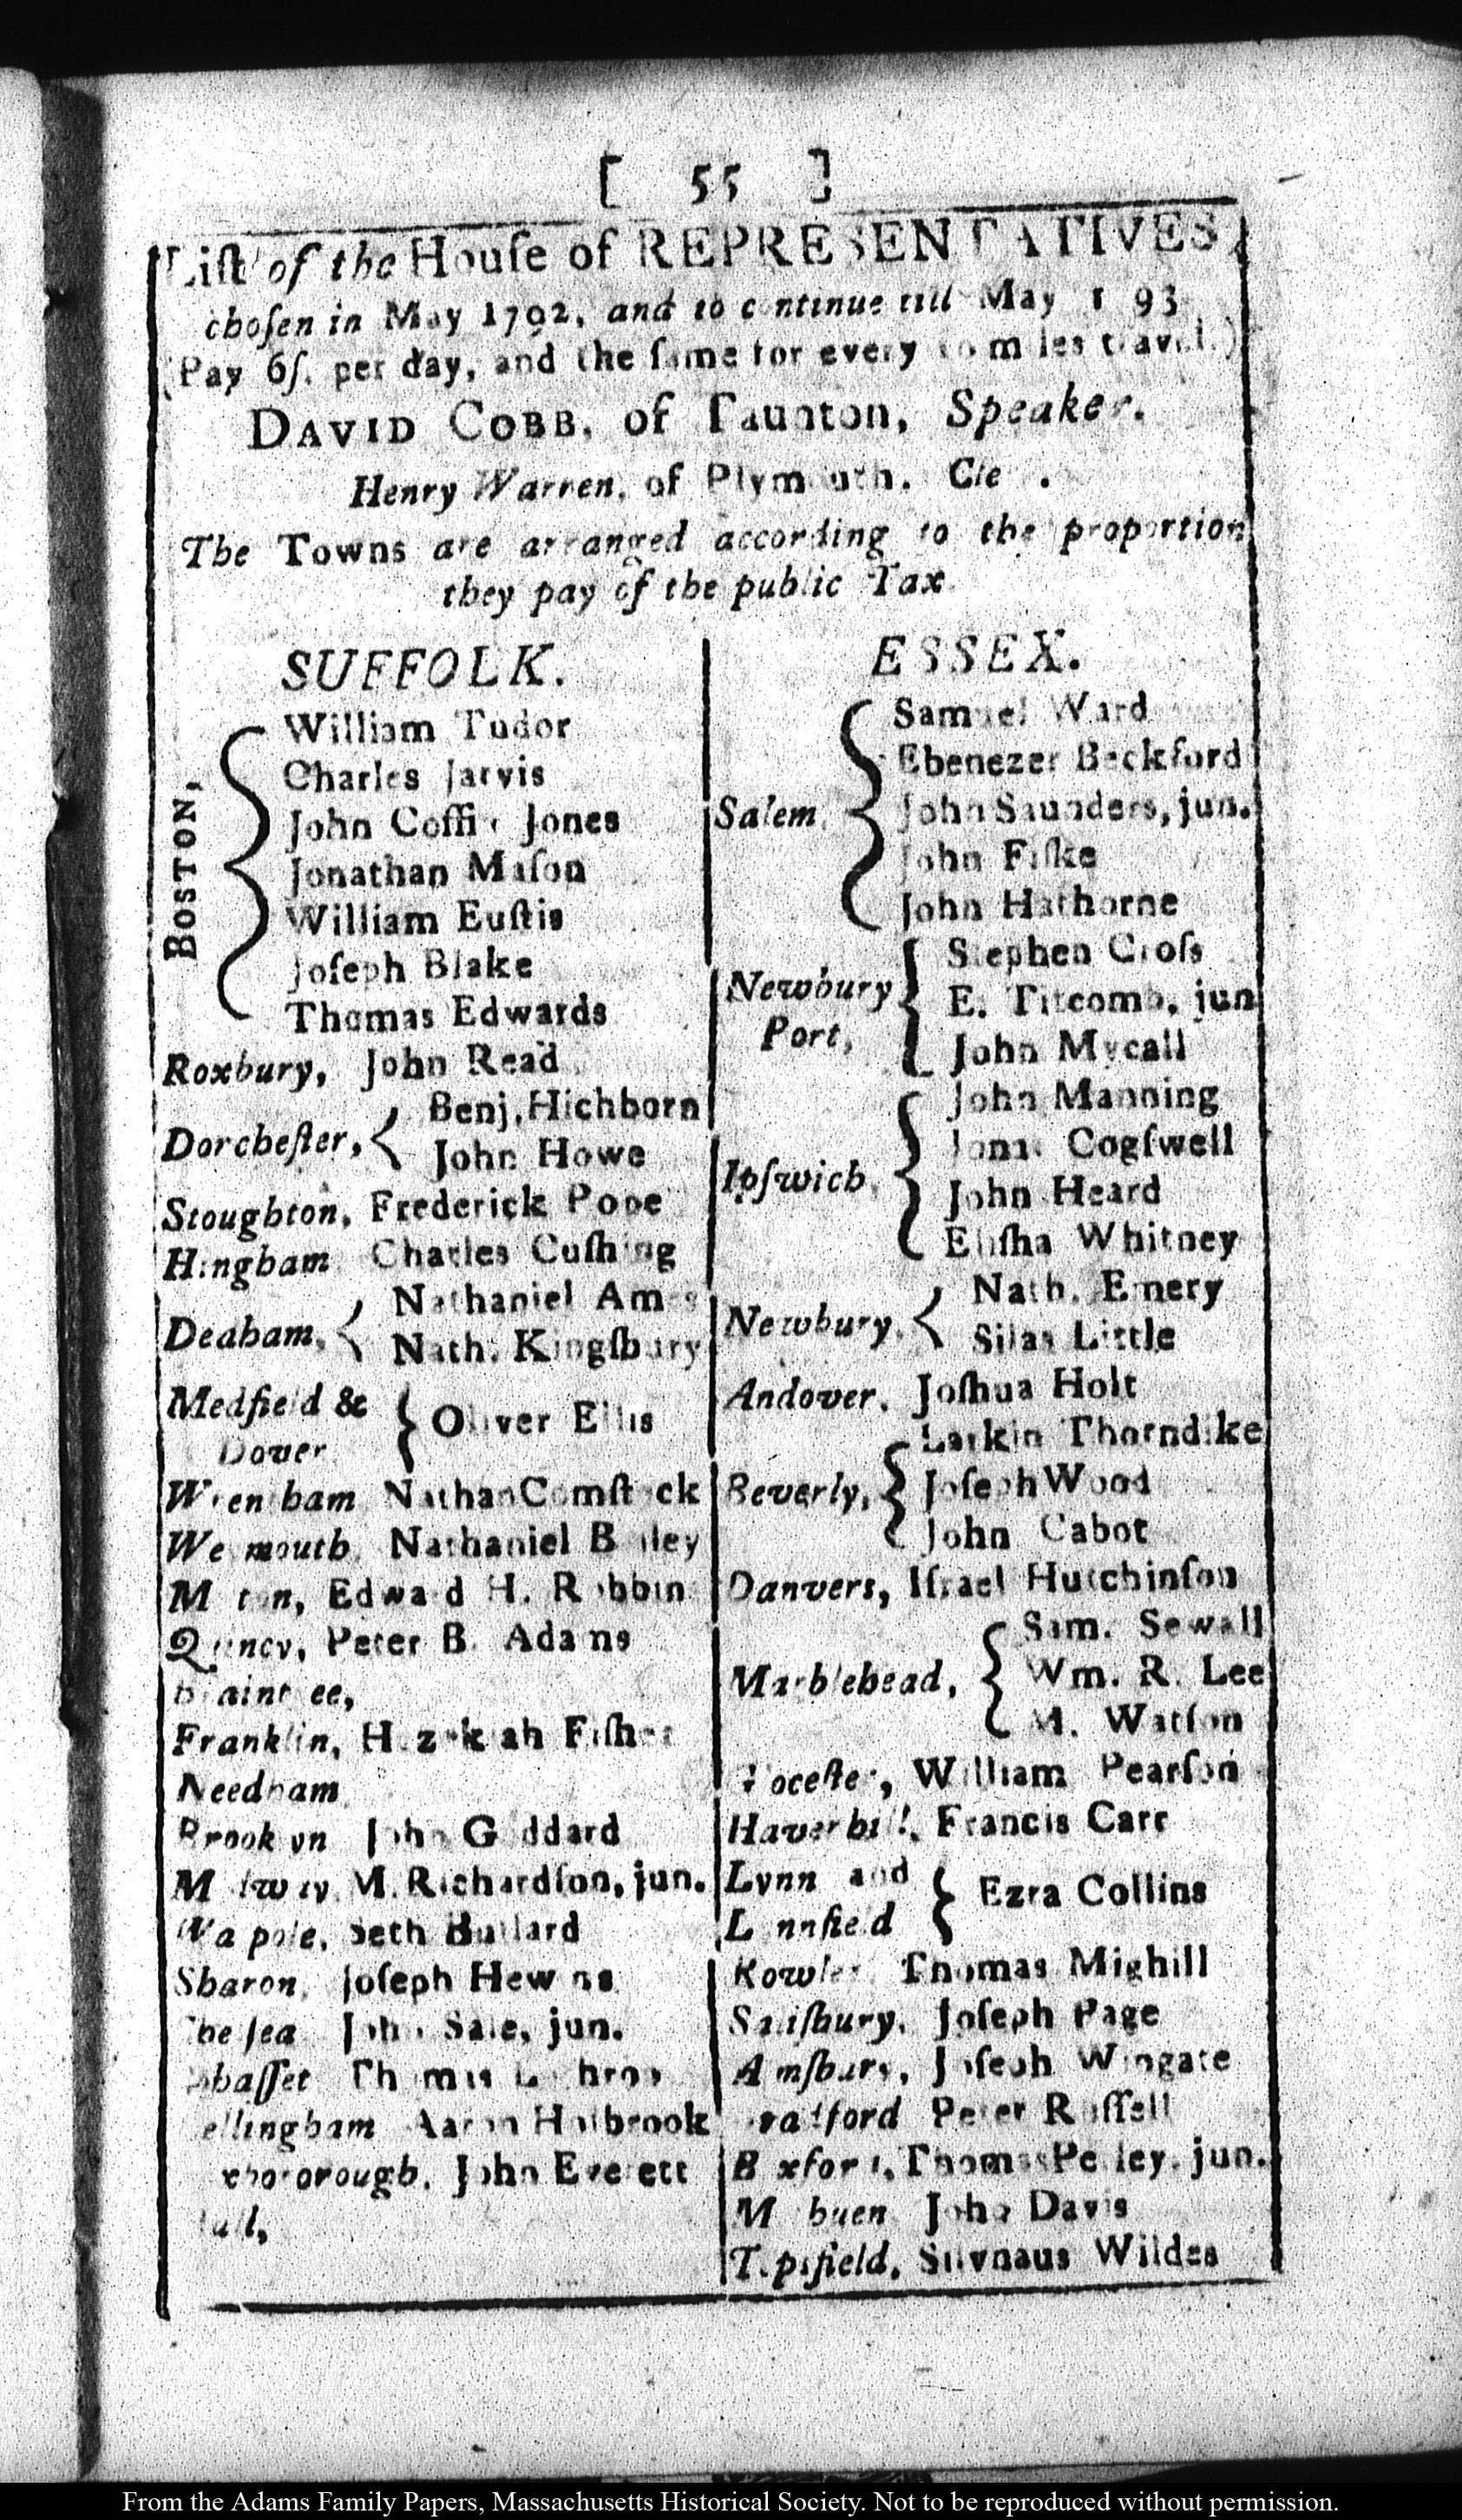 [ 55 ]
Liſt of the Houſe of REPRESENTATIVES,
choſen in May 1792, and to continue till May 1793
(Pay 6ſ. per day, and the ſame for every 10 miles travel.)
DAVID COBB, of Taunton, Speaker.
Henry Warren, of Plymouth, Cle .
The Towns are arranged according to the proportion
they pay of the public Tax.
SUFFOLK.
BOSTON,
William Tudor
Charles Jarvis
John Coffin Jones
Jonathan Maſon
William Euſtis
Joſeph Blake
Thomas Edwards
Roxbury, John Read
Dorcheſter, Benj. Hichborn
John Howe
Stoughton, Frederick Pope
Hingham Charles Cuſhing
Dedham, Nathaniel Ames
Nath. Kingſbury
Medfield & Dover Oliver Ellis
Wrentham Nathan Comſtock
Weymouth, Nathaniel Bailey
Milton, Edward H. Robbins
Quincy, Peter B. Adams
Braintree,
Franklin, Hezekiah Fiſher
Needham
Brooklyn John Goddard
Medway, M. Richardſon, jun.
Walpole, Seth Bullard
Sharon, Joſeph Hewins
Chelſea John Sale, jun.
Cohaſſet Thomas Lothrop
Bellingham Aaron Holbrook
Foxborough, John Everett
Hull,
ESSEX.
Salem,
Samuel Ward
Ebenezer Beckford
John Saunders, jun.
John Fiſke
John Hathorne
Newbury Port,
Stephen Croſs
E. Titcomb, jun
John Mycall
Ipſwich,
John Manning
Jona. Cogſwell
John Heard
Eliſha Whitney
Newbury, Nath. Emery
Silas Little
Andover, Joſhua Holt
Beverly,
Larkin Thorndike
Joſeph Wood
John Cabot
Danvers, Iſrael Hutchinſon
Marblehead,
Sam. Sewall
Wm. R. Lee
M. Watſon
Gloceſter, William Pearſon
Haverhill, Francis Carr
Lynn and Lynnfield Ezra Collins
Rowley, Thomas Mighill
Saliſbury, Joſeph Page
Almſbury, Joſeph Wingate
Bradford Peter Ruſſell
Boxford, Thomas Perley, jun.
Methuen John Davis
Topsfield, Silvnaus Wildes
From the Adams Family Papers, Massachusetts Historical Society. Not to be reproduced without permission.